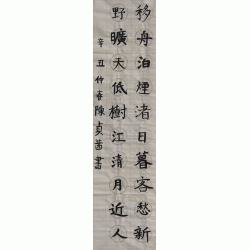 移舟泊煙渚日暮客愁新
野曠天低樹江清月近人
辛丑仲春陳貞茜書